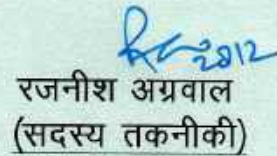 2012
रजनीश अग्रवाल
(सदस्य तकनीकी)